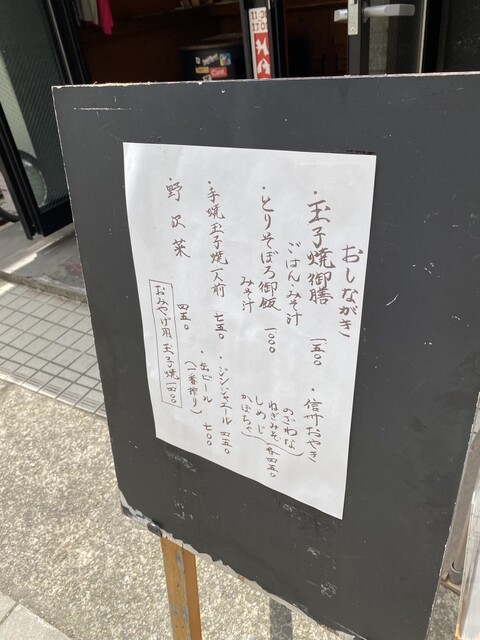 おしながき
・玉子焼御膳 一五〇〇
ごはん・みそ汁
・とりそぼろ御飯 一〇〇〇
みそ汁
・手焼玉子焼一人前 七五〇
・野沢菜 四五〇
おみやげ用玉子焼一四〇〇
・信州おやき
のざわな
ねぎみそ
しめじ
かぼちゃ
各四五〇
・ジンジャエール 四五〇
・缶ビール 七〇〇
(一番搾り)